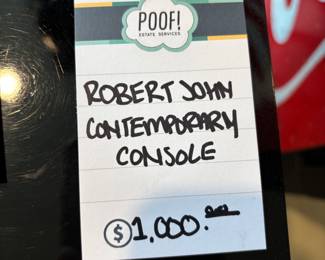 POOF!
ESTATE SERVICES
ROBERT JOHN
CONTEMPORARY
CONSOLE
$1,000.